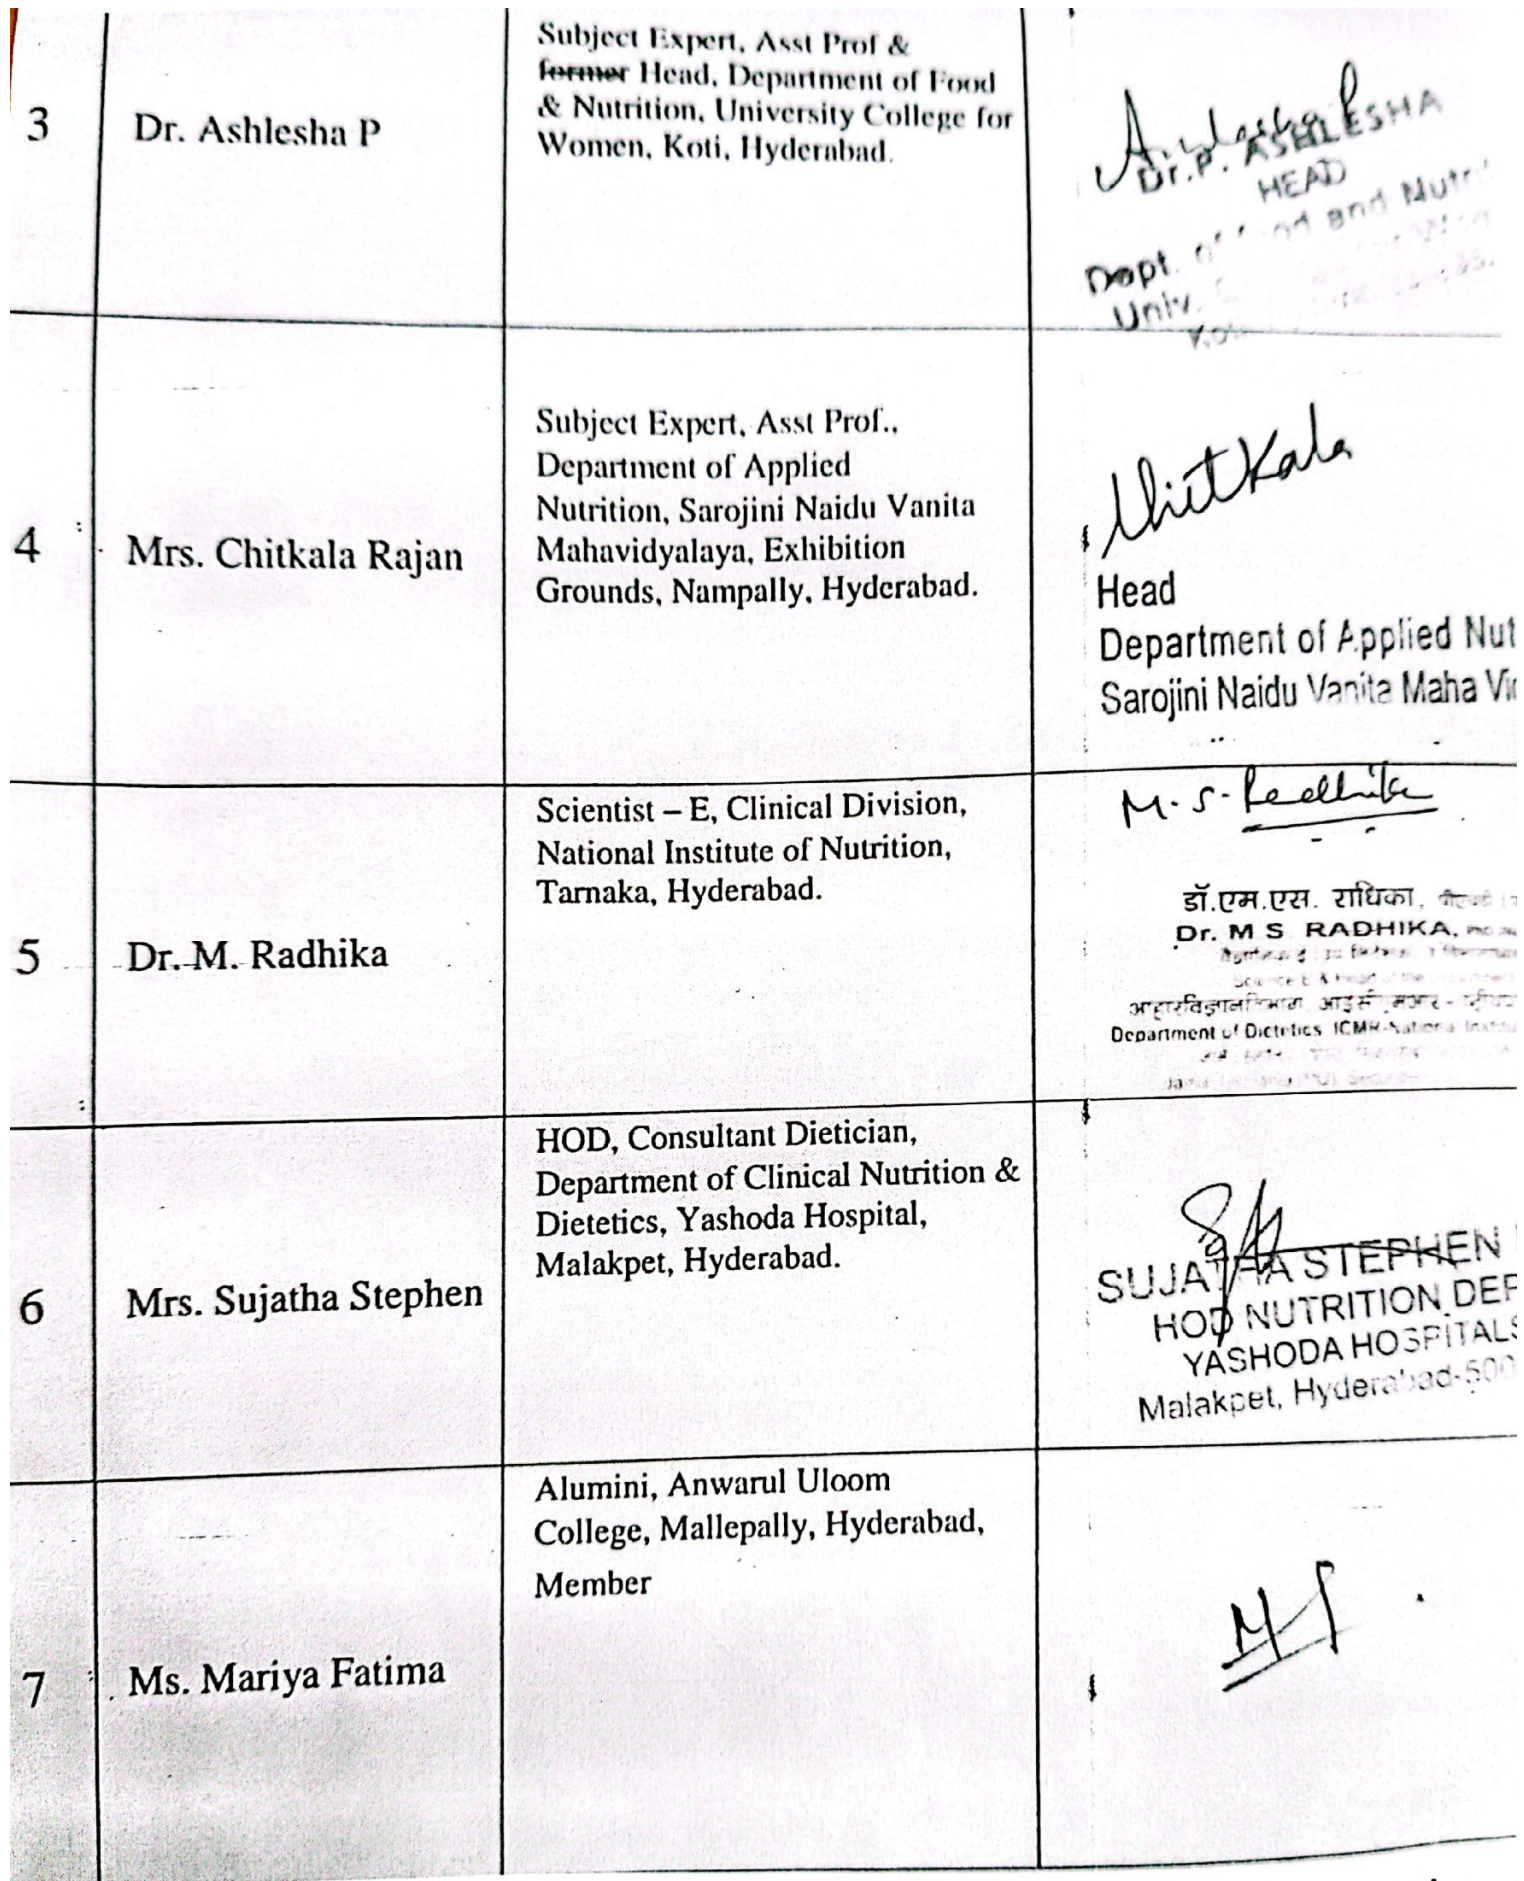 3
Dr. Ashlesha P
Subject Expert, Asst Prof &
former Head, Department of Food
& Nutrition, University College for
Women, Koti, Hyderabad.
Dr. P. ASHLESHA
HEAD
Dept. of and Nutr
Univ.
4
Mrs. Chitkala Rajan
Subject Expert, Asst Prof.,
Department of Applied
Nutrition, Sarojini Naidu Vanita
Mahavidyalaya, Exhibition
Grounds, Nampally, Hyderabad.
Chitkala
Head
Department of Applied Nut
Sarojini Naidu Vanita Maha Vi
5
Dr. M. Radhika
Scientist – E, Clinical Division,
National Institute of Nutrition,
Tarnaka, Hyderabad.
M. S. Radhika
डॉ.एम.एस. राधिका,
Dr. M S RADHIKA,
Department of Dietetics ICMR-National Institu
6
Mrs. Sujatha Stephen
HOD, Consultant Dietician,
Department of Clinical Nutrition &
Dietetics, Yashoda Hospital,
Malakpet, Hyderabad.
SUJATHA STEPHEN
HOD NUTRITION DEP
YASHODA HOSPITALS
Malakpet, Hyderabad-500
7
Ms. Mariya Fatima
Alumini, Anwarul Uloom
College, Mallepally, Hyderabad,
Member